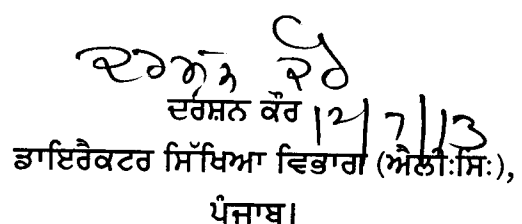 ਦਰਸ਼ਨ ਕੌਰ
ਦਰਸ਼ਨ ਕੌਰ 12/7/13
ਡਾਇਰੈਕਟਰ ਸਿੱਖਿਆ ਵਿਭਾਗ (ਐਲੀ:ਸਿ:),
ਪੰਜਾਬ।